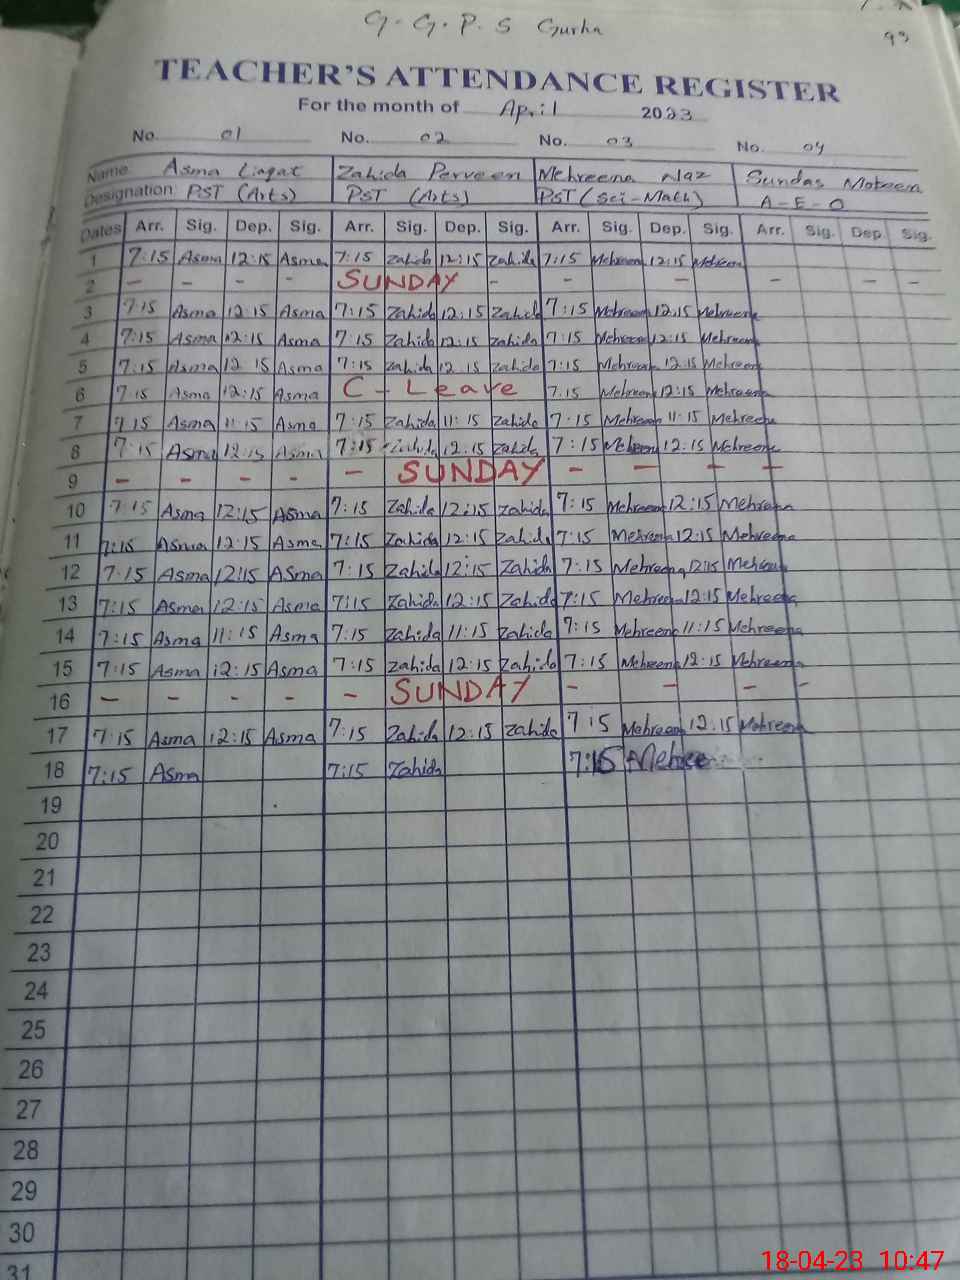 G-G.P.S Gurha
93
TEACHER'S ATTENDANCE REGISTER
For the month of April 2023
No. 01 No. 02 No. 03 No. 04
Name Asma Liaqat Zahida Perveen Mehreena Naz Sundas Mobeen
Designation: PST (Arts) PST (Arts) PST (Sci-Math) A-E-O
Dates Arr. Sig. Dep. Sig. Arr. Sig. Dep. Sig. Arr. Sig. Dep. Sig. Arr. Sig. Dep Sig.
1 7:15 Asma 12:15 Asma 7:15 Zahida 12:15 Zahida 7:15 Mehreena 12:15 Mehreena
2 - - - - SUNDAY - - - - - -
3 7:15 Asma 12:15 Asma 7:15 Zahida 12:15 Zahida 7:15 Mehreena 12:15 Mehreena
4 7:15 Asma 12:15 Asma 7:15 Zahida 12:15 Zahida 7:15 Mehreena 12:15 Mehreena
5 7:15 Asma 12:15 Asma 7:15 Zahida 12:15 Zahida 7:15 Mehreena 12:15 Mehreena
6 7:15 Asma 12:15 Asma C-Leave 7:15 Mehreena 12:15 Mehreena
7 7:15 Asma 11:15 Asma 7:15 Zahida 11:15 Zahida 7:15 Mehreena 11:15 Mehreena
8 7:15 Asma 12:15 Asma 7:15 Zahida 12:15 Zahida 7:15 Mehreena 12:15 Mehreena
9 - - - - - SUNDAY - - - -
10 7:15 Asma 12:15 Asma 7:15 Zahida 12:15 Zahida 7:15 Mehreena 12:15 Mehreena
11 7:15 Asma 12:15 Asma 7:15 Zahida 12:15 Zahida 7:15 Mehreena 12:15 Mehreena
12 7:15 Asma 12:15 Asma 7:15 Zahida 12:15 Zahida 7:15 Mehreena 12:15 Mehreena
13 7:15 Asma 12:15 Asma 7:15 Zahida 12:15 Zahida 7:15 Mehreena 12:15 Mehreena
14 7:15 Asma 11:15 Asma 7:15 Zahida 11:15 Zahida 7:15 Mehreena 11:15 Mehreena
15 7:15 Asma 12:15 Asma 7:15 Zahida 12:15 Zahida 7:15 Mehreena 12:15 Mehreena
16 - - - - - SUNDAY - - - -
17 7:15 Asma 12:15 Asma 7:15 Zahida 12:15 Zahida 7:15 Mehreena 12:15 Mehreena
18 7:15 Asma 7:15 Zahida 7:15
19
20
21
22
23
24
25
26
27
28
29
30
31
18-04-23 10:47